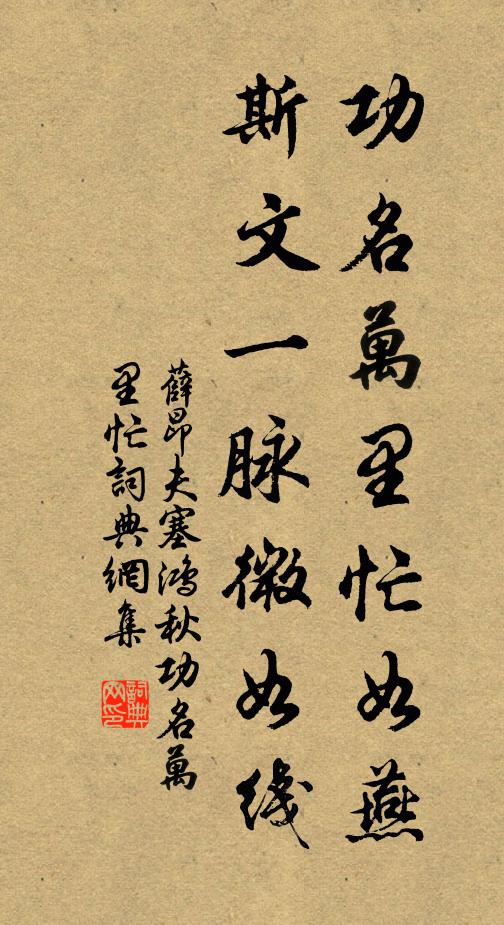 功名萬里忙如燕
斯文一脉微如线
薛昂夫塞鴻秋功名萬
里忙詞典網集
詞典
网印